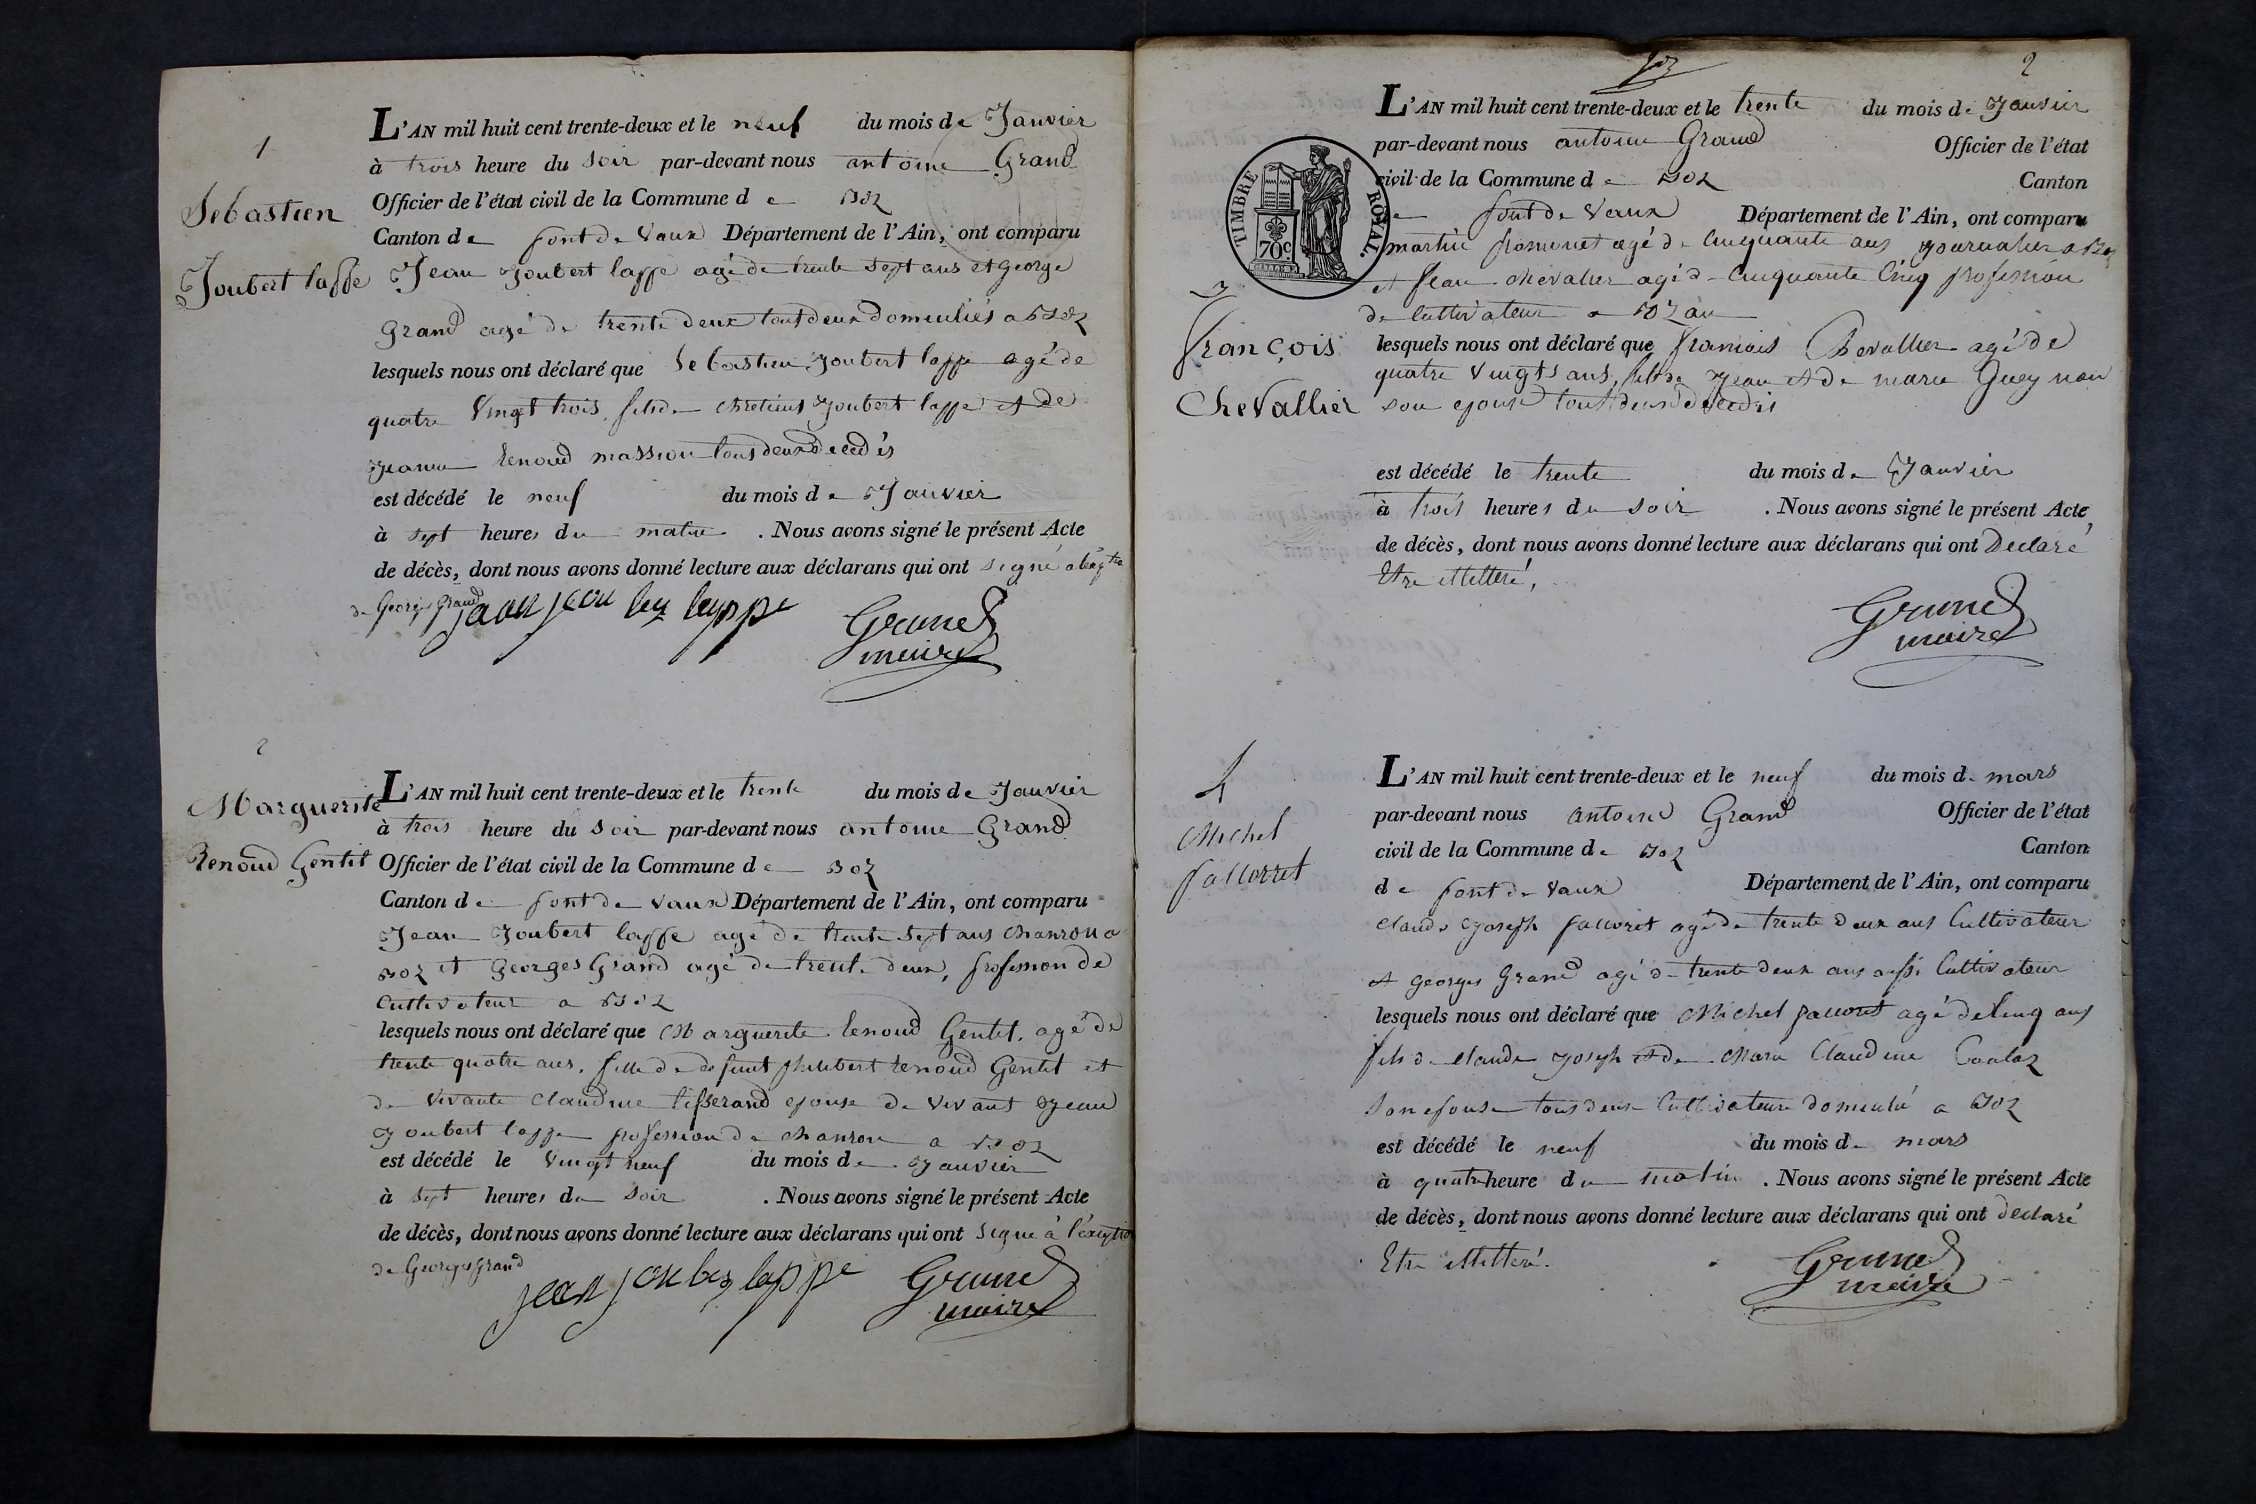 1
Sebastien
Joubert laffe
L'AN mil huit cent trente-deux et le neuf du mois de Janvier
à trois heure du soir par-devant nous antoine Grand
Officier de l'état civil de la Commune de Boz
Canton de pont de Vaux Département de l'Ain, ont comparu
Jean Joubert laffe agé de trente sept ans et george
grand agé de trente deux tout deux domiciliés a Boz
lesquels nous ont déclaré que Sebastien Joubert laffe agé de
quatre Vingt trois, fils de Joubert laffe et de
Jeanne Renoud massion tous deux decedés
est décédé le neuf du mois de Janvier
à sept heures du matin . Nous avons signé le présent Acte
de décès, dont nous avons donné lecture aux déclarans qui ont signé
de Georges Grand
Grand
maire
2
Marguerite
Renoud Gentil
L'AN mil huit cent trente-deux et le trente du mois de Janvier
à trois heure du soir par-devant nous antoine Grand
Officier de l'état civil de la Commune de Boz
Canton de pont de vaux Département de l'Ain, ont comparu
Jean Joubert laffe agé de trente sept ans a
Boz et Georges Grand agé de trente deux, profession de
Cultivateur a Boz
lesquels nous ont déclaré que Marguerite Renoud Gentil, agé de
trente quatre ans, fille de defunt philibert Renoud Gentil et
de vivante Claudine tifserand epouse de vivant Jean
Joubert laffe profession de a Boz
est décédé le vingt neuf du mois de Janvier
à sept heures du soir . Nous avons signé le présent Acte
de décès, dont nous avons donné lecture aux déclarans qui ont signé à l'exception
de Georges grand
Grand
maire
2
TIMBRE ROYAL.
70c
3
François
Chevallier
L'AN mil huit cent trente-deux et le trente du mois de Janvier
par-devant nous antoine Grand Officier de l'état
civil de la Commune de Boz Canton
de pont de Vaux Département de l'Ain, ont comparu
martin agé de Cinquante ans journalier a Boz
et Jean chevalier agé de Cinquante Cinq profession
de Cultivateur a Boz
lesquels nous ont déclaré que Chevallier agé de
quatre vingts ans, fils de Jean et de marie
son epouse tout deux decedés
est décédé le trente du mois de Janvier
à trois heures du soir . Nous avons signé le présent Acte
de décès, dont nous avons donné lecture aux déclarans qui ont Declaré
Etre illetteré,
Grand
maire
4
Michel
pallorret
L'AN mil huit cent trente-deux et le neuf du mois de mars
par-devant nous antoine Grand Officier de l'état
civil de la Commune de Boz Canton
de pont de vaux Département de l'Ain, ont comparu
Claude Joseph palloret agé de trente deux ans Cultivateur
et georges Grand agé de trente deux ans aussi Cultivateur
lesquels nous ont déclaré que Michel agé de Cinq ans
fils de Claude Joseph et de Marie Claudine
son epouse tous deux Cultivateurs domicilié a Boz
est décédé le neuf du mois de mars
à quatre heure du matin . Nous avons signé le présent Acte
de décès, dont nous avons donné lecture aux déclarans qui ont declaré
Etre illetteré.
Grand
maire